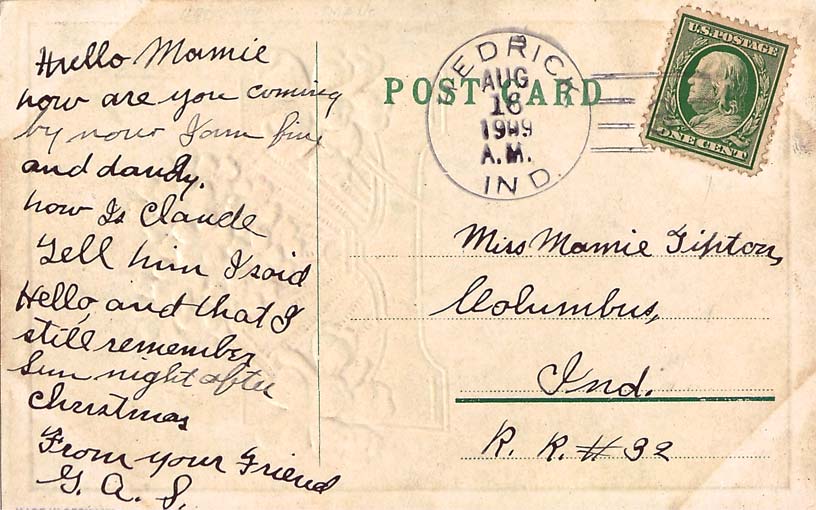 Hello Mamie
how are you coming
by now I am fine
and dandy.
how Is Claude
Tell him I said
Hello, and that I
still remember
Sun night after
Christmas
From your Friend
G. A. S.
POST CARD
HEDRICK
AUG
18
1909
A.M.
IND.
U.S. POSTAGE
ONE CENT
Miss Mamie Tipton,
Columbus,
Ind.
R. R. # 32